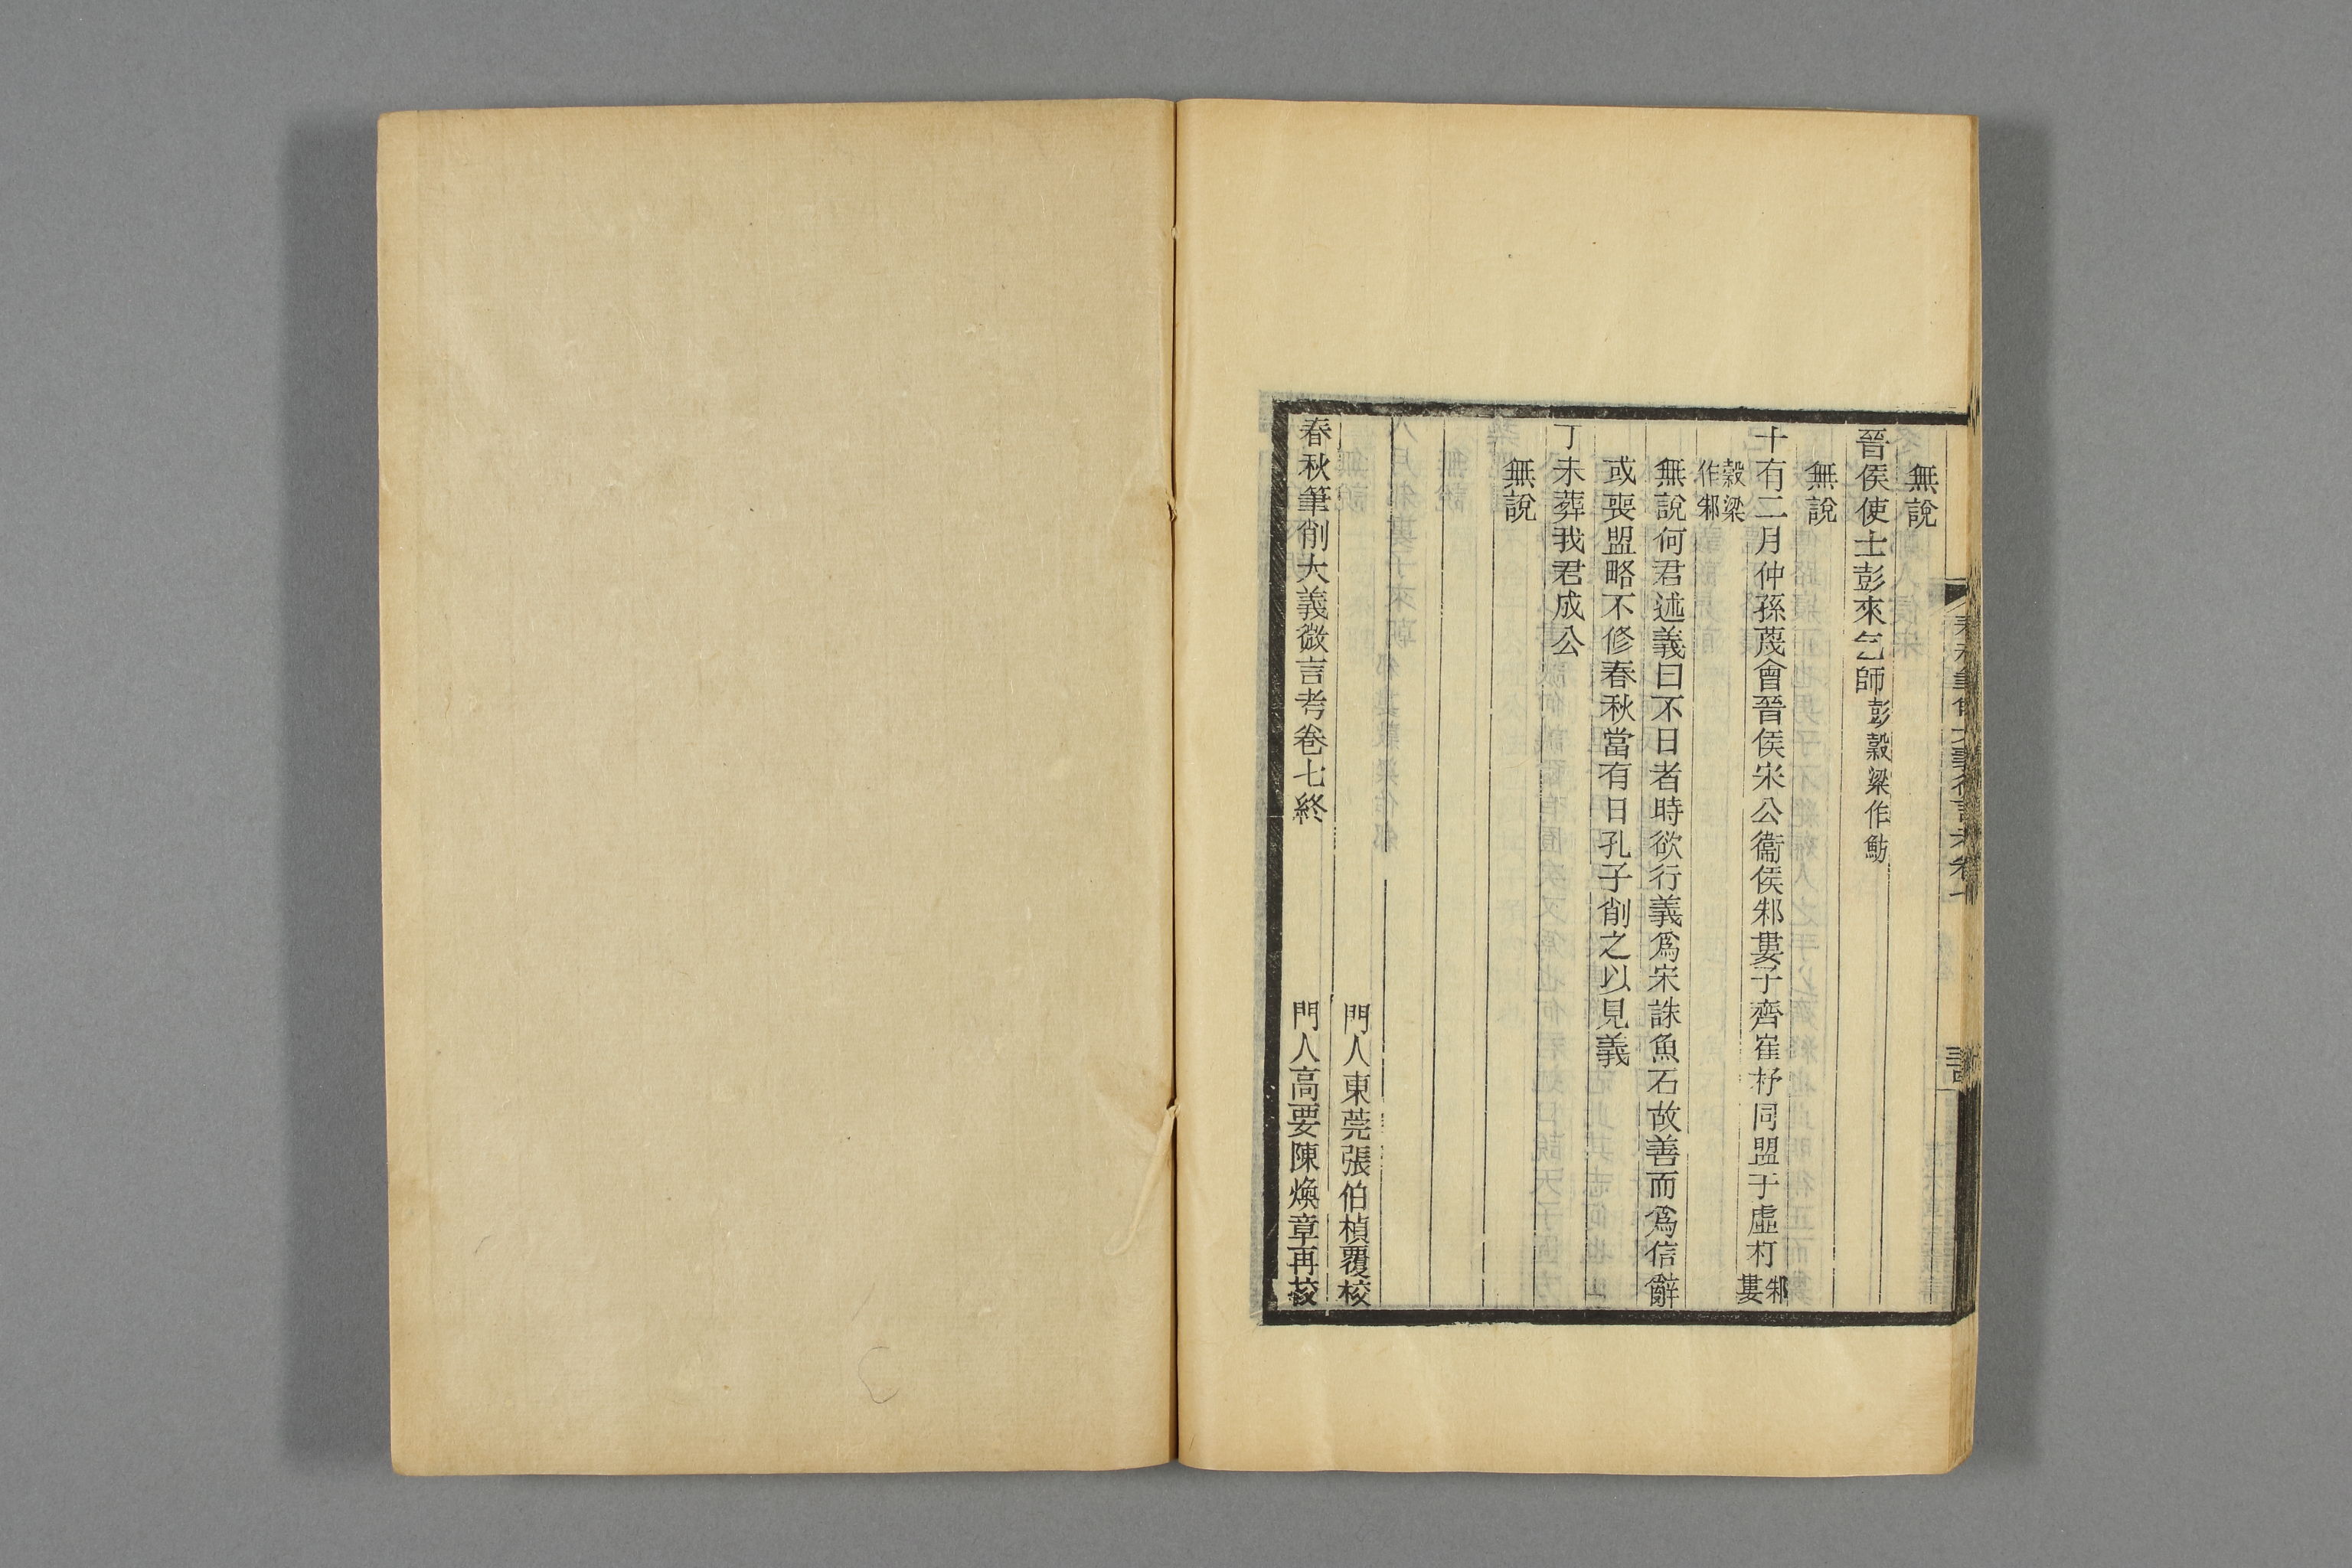 無說
晉侯使士彭來乞師彭穀梁作魴
無說
十有二月仲孫蔑會晉侯宋公衞侯邾婁子齊崔杼同盟于虛朾邾婁
穀梁作邾
無說何君述義曰不日者時欲行義爲宋誅魚石故善而爲信辭
或喪盟略不修春秋當有日孔子削之以見義
丁未葬我君成公
無說
門人東莞張伯楨覆校
春秋筆削大義微言考卷七終
門人高要陳煥章再校